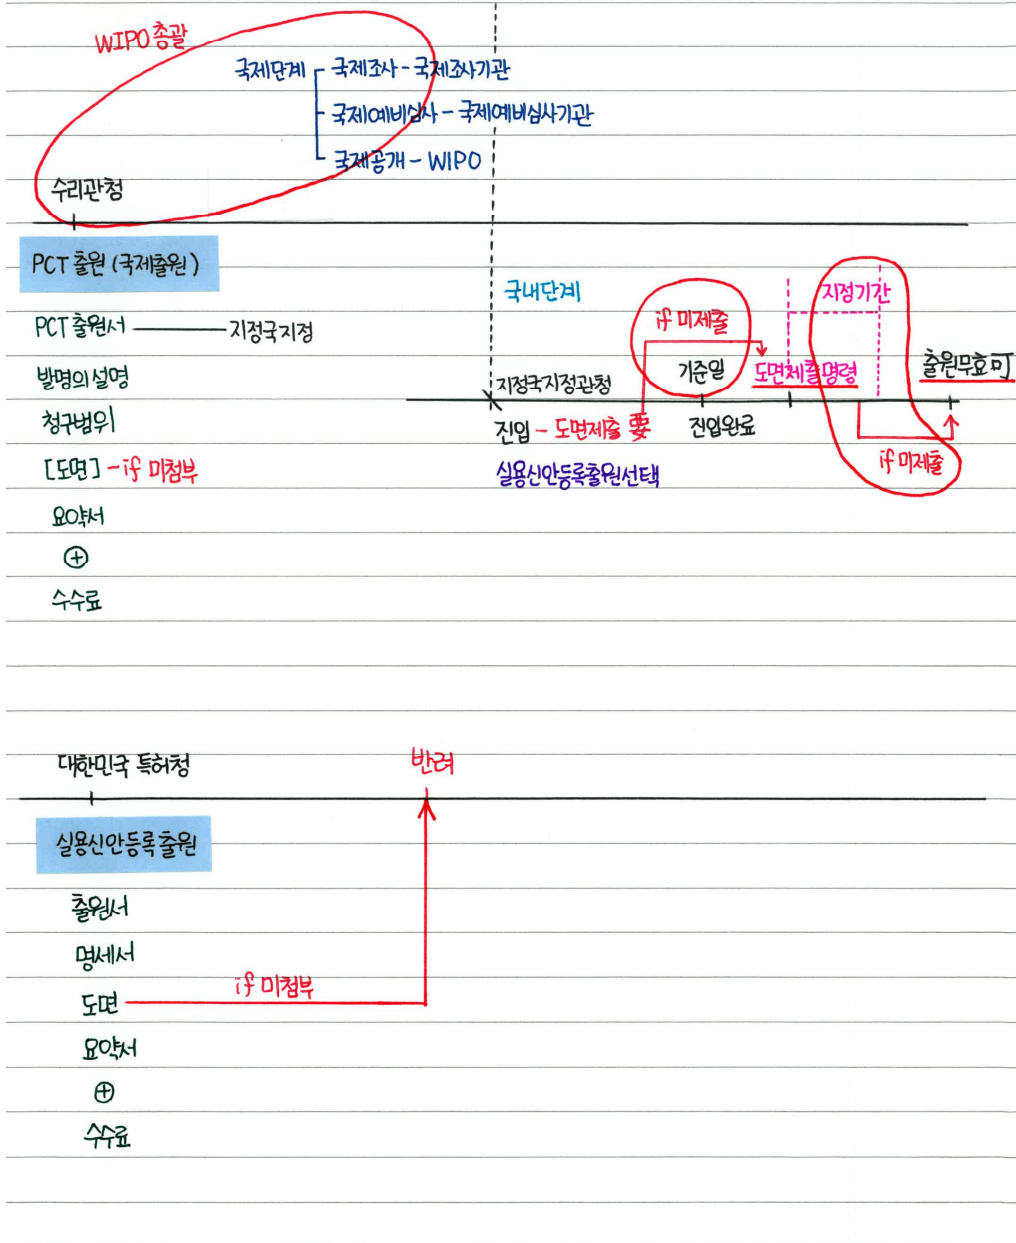 WIPO 총괄
국제단계 국제조사 - 국제조사기관
국제예비심사 - 국제예비심사기관
국제공개 - WIPO
수리관청
PCT 출원 (국제출원)
PCT 출원서 지정국지정
발명의 설명
청구범위
[도면] - if 미첨부
요약서
+
수수료
국내단계
지정기간
if 미제출
기준일
도면제출명령
출원무효 可
지정국지정관청
진입 - 도면제출 要
진입완료
if 미제출
실용신안등록출원선택
대한민국 특허청
반려
실용신안등록출원
출원서
명세서
도면 if 미첨부
요약서
+
수수료